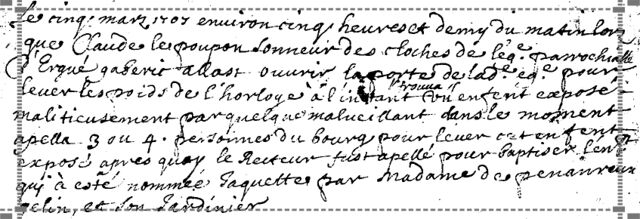 le cinq marz 1707 environ cinq heures et demy du matin lors
que Claude le poupon sonneur des cloches de l'eg.e parrochialle
d'Ergué gaberic allast ouvrir la porte de lad.e eg.e pour
lever les poids de l'horloge à l'instant trouva un enfent exposé
malitieusement par quelque malveillant dans le moment
apella 3 ou 4 personnes du bourg pour lever cet enfent
exposé apres quoy le Recteur fust apellé pour baptiser l'en
qui à esté nommée Jaquette par Madame de penanreun
gelin, et son Jardinier